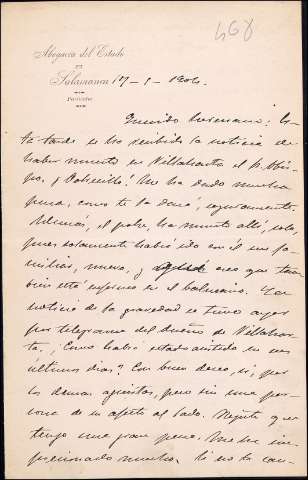 468
Abogacía del Estado
en
Salamanca 17-5-1904.
Particular
Querido : Es-
ta tarde se ha recibido la noticia de
haber muerto en Villaharta el p. Obis-
po. ¡Pobrecillo! Me ha dado mucha
pena, como te la dará, seguramente.
Además, el pobre, ha muerto allí, solo,
pues solamente había ido con él un fa-
miliar, nuevo, y creo que tam
bién está enfermo en el balneario. La
noticia de la gravedad se tuvo ayer
por telegrama del dueño de Villahar-
ta. ¿Como habrá estado asistido en sus
últimos dias? Con buen deseo, sí, por
los demas agüistas, pero sin una per-
sona de su afecto al lado. Repito que
tengo una gran pena. Me ha im-
presionado mucho. Si no la con-